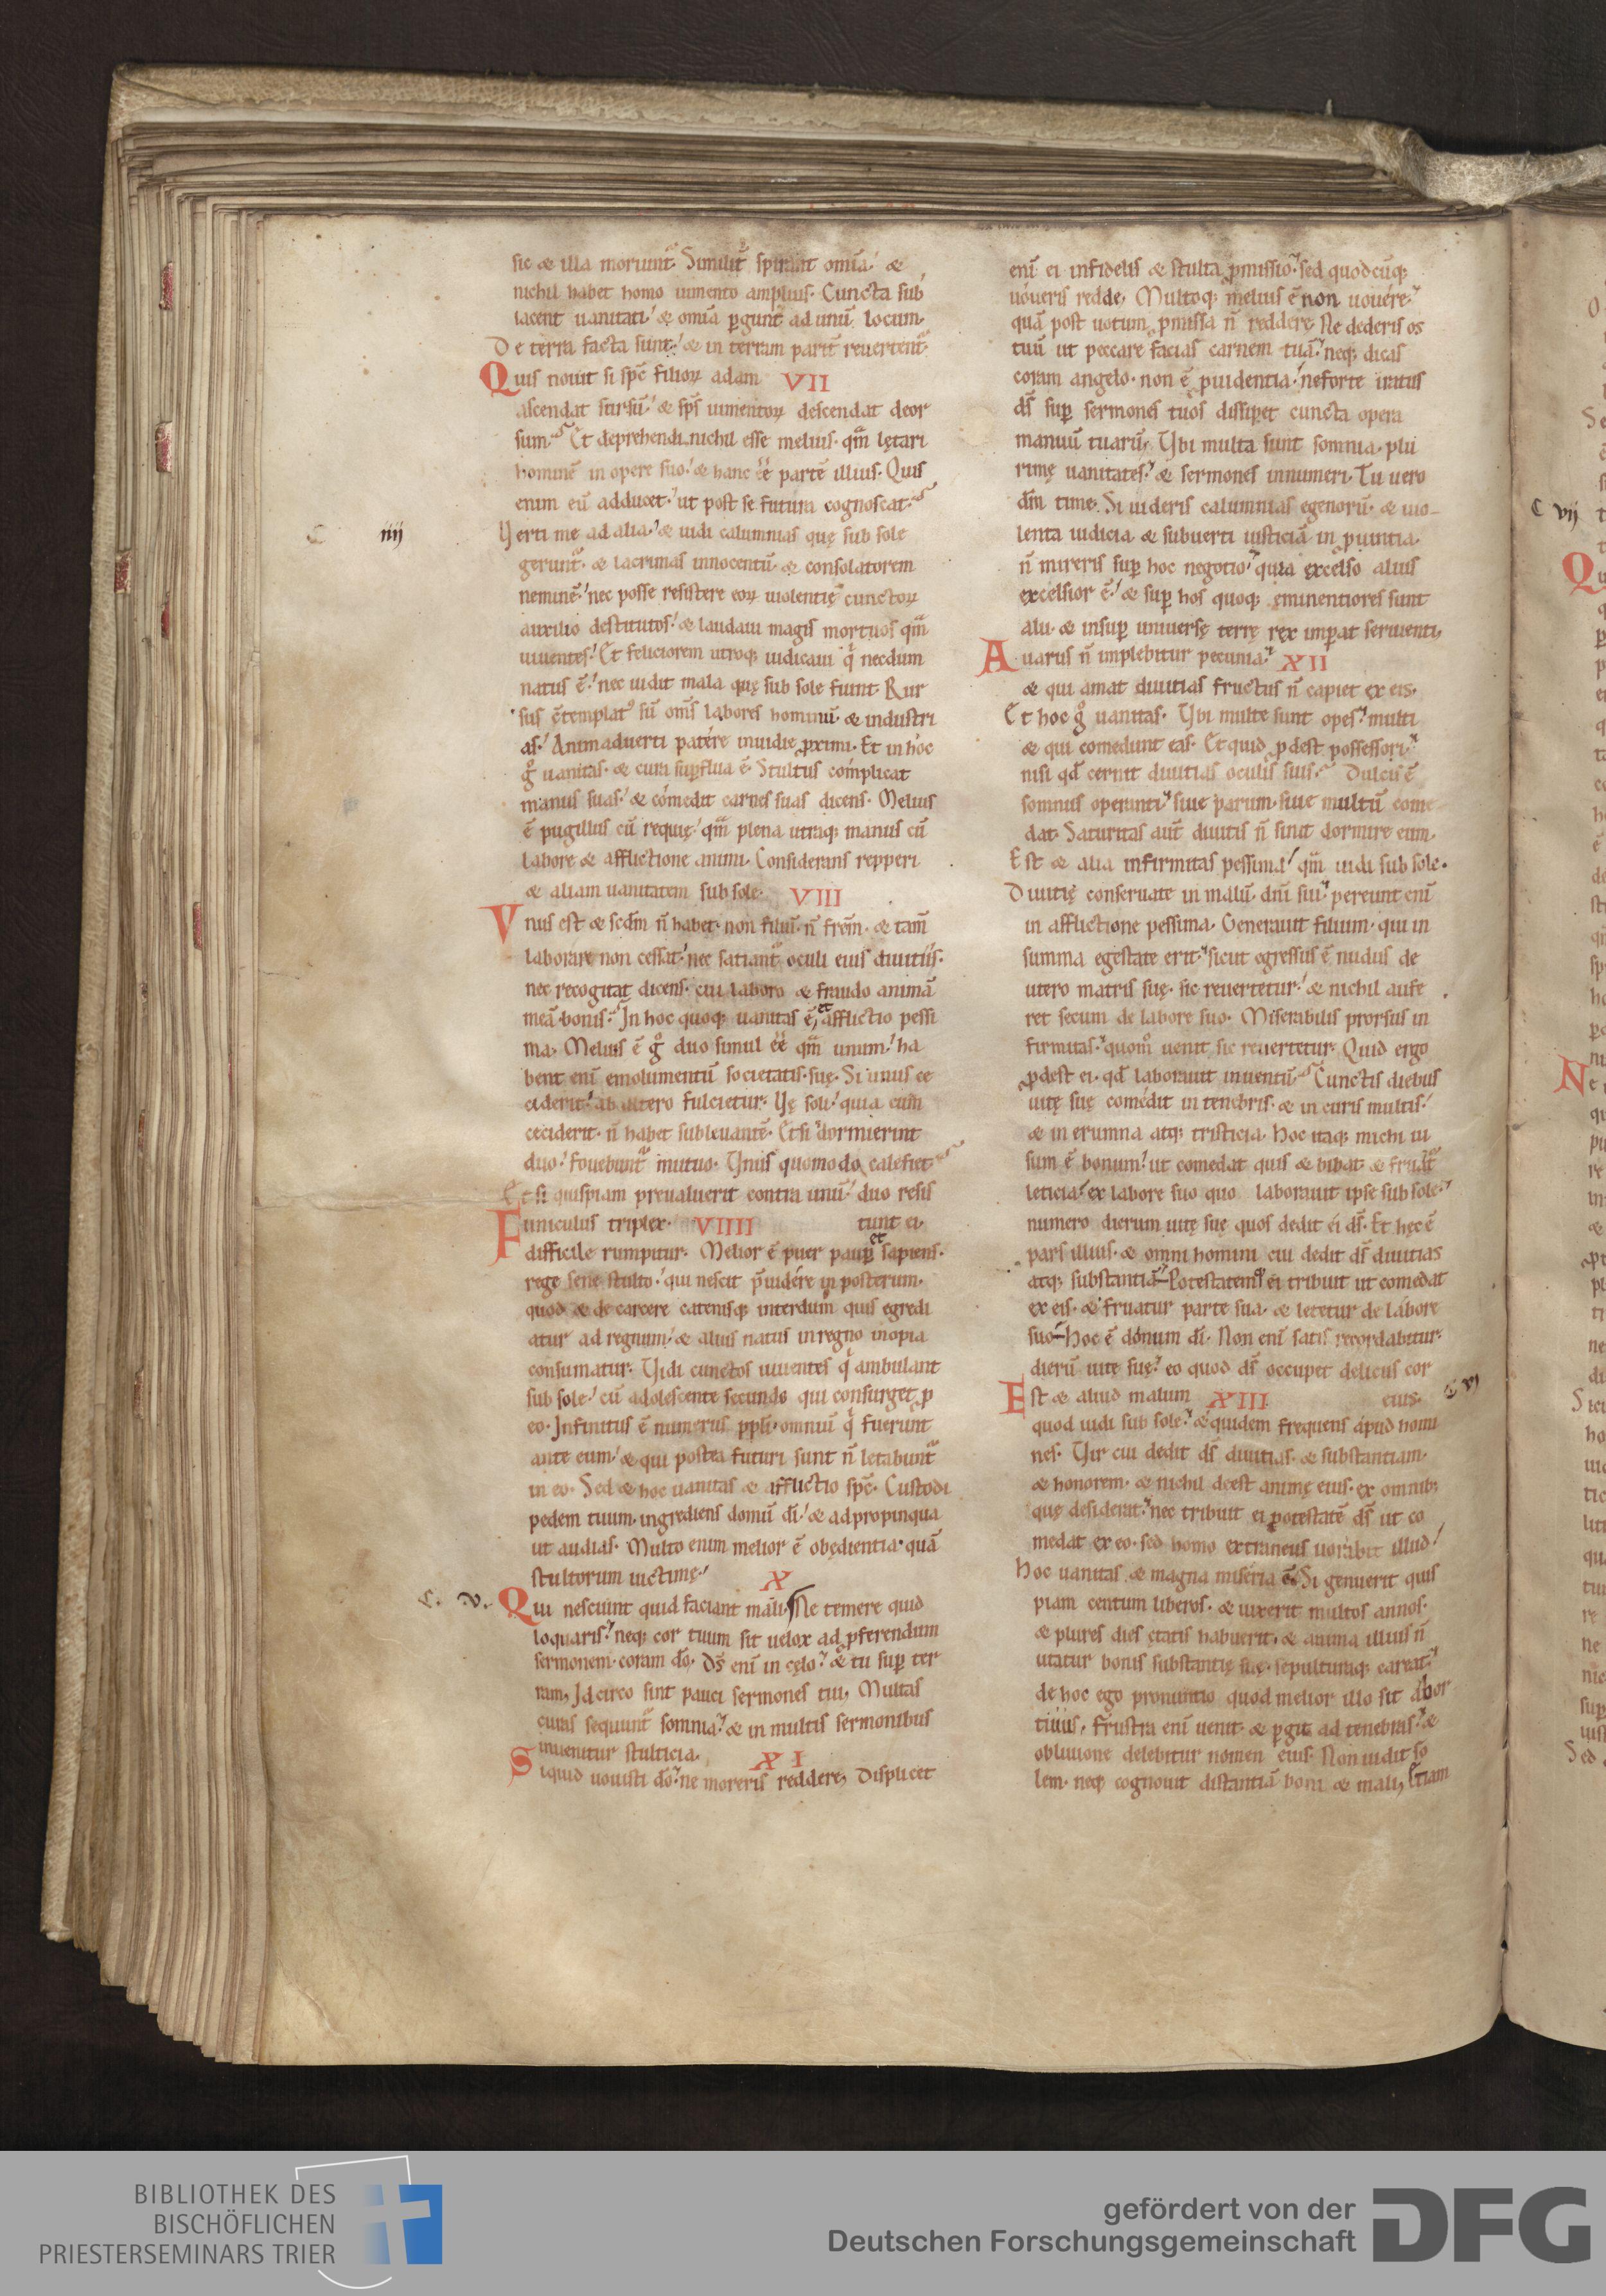 sic & illa moriunt᷑. Similit᷑ spirant om̄ia. &
nichil habet homo iumento amplius. Cuncta sub
iacent uanitati. & om̄ia ꝑgunt᷑ ad unū locum.
De terra facta sunt. & in terram parit᷑ reuertent᷑.
Quis nouit si sp̄c filioꝝ adam VII
ascendat sursū. & sp̄s iumentoꝝ descendat deor
sum. Et deprehendi nichil esse melius. qm̄ lętari
hominē in opere suo. & hanc eē partē illius. Quis
enim eū adducet. ut post se futura cognoscat.
C iiij
Verti me ad alia. & uidi calumnias quę sub sole
gerunt᷑. & lacrimas innocentū. & consolatorem
neminē. nec posse resistere eoꝝ uiolentię cunctoꝝ
auxilio destitutos. & laudaui magis mortuos qm̄
uiuentes. Et feliciorem utroq; iudicaui q̄ necdum
natus ē. nec uidit mala quę sub sole fiunt. Rur
sus c̄templat᷒ sū om̄s labores hominū. & industri
as. Animaduerti patére inuidie ꝓximi. Et in hoc
gͦ uanitas. & cura suꝑflua ē. Stultus complicat
manus suas. & cómedit carnes suas dicens. Melius
ē pugillus cū requię. qm̄ plena utraq; manus cū
labore & afflictione animi. Considerans repperi
& aliam uanitatem sub sole. VIII
Vnus est & scdm̄ n̄ habet. non filiū. n̄ frēm. & tam̄
laboráre non cessat. nec satiant᷑ oculi eius diuitiis.
nec recogitat dicens. cui laboro & fraudo animā
meā bonis. In hoc quoq; uanitas ē, et afflictio pessi
ma. Melius ē gͦ duo simul eē qm̄ unum. ha
bent enī emolumentū societatis suę. Si unus ce
ciderit. ab altero fulcietur. Vę soli. quia cum
ceciderit. n̄ habet subleuantē. Et si dormierint
duo. fouebunt᷑ mutuo. Vnus quomodo calefiet
Et si quispiam preualuerit contra unū. duo resis
Funiculus triplex. VIIII tunt ei.
difficile rumpitur. Melior ē puer pauꝑ et sapiens.
rege sene stulto. qui nescit p̄uidére in posterum.
quod & de carcere catenisq; interdum quis egredi
atur ad regnum. & alius natus in regno inopia
consumatur. Vidi cunctos uiuentes q̄ ambulant
sub sole. cū adolescente secundo qui consurget ꝓ
eo. Infinitus ē numerus ppl̄i omniū q̄ fuerunt
ante eum. & qui postea futuri sunt n̄ letabunt᷑
in eo. Sed & hoc uanitas & afflictio sp̄c. Custodi
pedem tuum. ingrediens domū dī. & adpropinqua
ut audias. Multo enim melior ē obędientia. quā
stultorum uictimę. X
C. V.
Qui nesciunt quid faciant mali. Ne temere quid
loquaris. neq; cor tuum sit uelox ad ꝓferendum
sermonem coram dō. Ds̄ enī in cęlo. & tu suꝑ ter
ram. Idcirco sint pauci sermones tui. Multas
curas sequunt᷑ somnia. & in multis sermonibus
inuenitur stulticia. XI
Siquid uouisti dō. ne moreris reddere. Displicet
enī ei infidelis & stulta ꝓmissio. sed quodcūq;
uóueris redde. Multoq; melius ē non uouére.
quā post uotum ꝓmissa n̄ reddere. Ne dederis os
tuū ut peccare facias carnem tuā. neq; dicas
coram angelo. non ē ꝓuidentia. ne forte iratus
ds̄ suꝑ sermones tuos dissipet cuncta opera
manuū tuarū. Vbi multa sunt somnia. plu
rimę uanitates. & sermones innumeri. Tu uero
dm̄ time. Si uideris calumnias egenorū. & uio
lenta iudicia. & subuerti iusticiā in ꝓuintia.
n̄ mireris suꝑ hoc negotio. quia excelso alius
excelsior ē. & suꝑ hos quoq; ęminentiores sunt
alii. & insuꝑ uniuersę terrę rex imꝑat seruienti.
Auarus n̄ implebitur pecunia. XII
& qui amat diuitias fructus n̄ capiet ex eis.
Et hoc gͦ uanitas. Vbi multe sunt opes. multi
& qui comedunt eas. Et quid ꝓdest possessori.
nisi qd̄ cernit diuitias oculis suis. Dulcis ē
somnus operanti. siue parum. siue multū come
dat. Saturitas aut̄ diuitis n̄ sinit dormire eum.
Est & alia infirmitas pessima. qm̄ uidi sub sole.
Diuitię conseruate in malū. dnī sui. pereunt enī
in afflictione pessima. Generauit filium. qui in
summa egestate erit. sicut egressus ē nudus de
utero matris suę. sic reuertetur. & nichil aufe
ret secum de labore suo. Miserabilis prorsus in
firmitas. quomͦ uenit sic reuertetur. Quid ergo
ꝓdest ei. qd̄ laborauit in uentū. Cunctis diebus
uitę suę comédit in tenebris. & in curis multis.
& in erumna atq; tristicia. Hoc itaq; michi ui
sum ē bonum. ut comedat quis & bibat & fruat᷑
leticia. ex labore suo quo laborauit ipse sub sole.
numero dierum uitę suę quos dedit ei ds̄. Et hęc ē
pars illius. & omni homini cui dedit ds̄ diuitias
atq; substantiā. Potestatemq; ei tribuit ut comedat
ex eis. & fruatur parte sua. & letetur de labore
suo. Hoc ē dónum dī. Non enī satis recordabitur.
dierū uitę suę. eo quod ds̄ occupet deliciis cor
Est & aliud malum XIII eius. C vj
quod uidi sub sole. & quidem frequens ápud homi
nes. Vir cui dedit ds̄ diuitias. & substantiam.
& honorem. & nichil deest animę eius. ex omnib;
quę desiderat. nec tribuit ei potestatē ds̄ ut co
medat ex eo. sed homo extraneus uorabit illud.
Hoc uanitas & magna miseria ē. Si genuerit quis
piam centum liberos. & uixerit multos annos.
& plures dies ętatis habuerit. & anima illius n̄
utatur bonis substantię suę. sepulturaq; careat.
de hoc ego pronuntio quod melior illo sit abor
tiuus. Frustra enī uenit. & ꝑgit ad tenebras. &
obliuione delebitur nomen eius. Non uidit so
lem. neq; cognouit distantiā boni & mali. Etiam
C vij
BIBLIOTHEK DES
BISCHÖFLICHEN
PRIESTERSEMINARS TRIER
gefördert von der
Deutschen Forschungsgemeinschaft
DFG